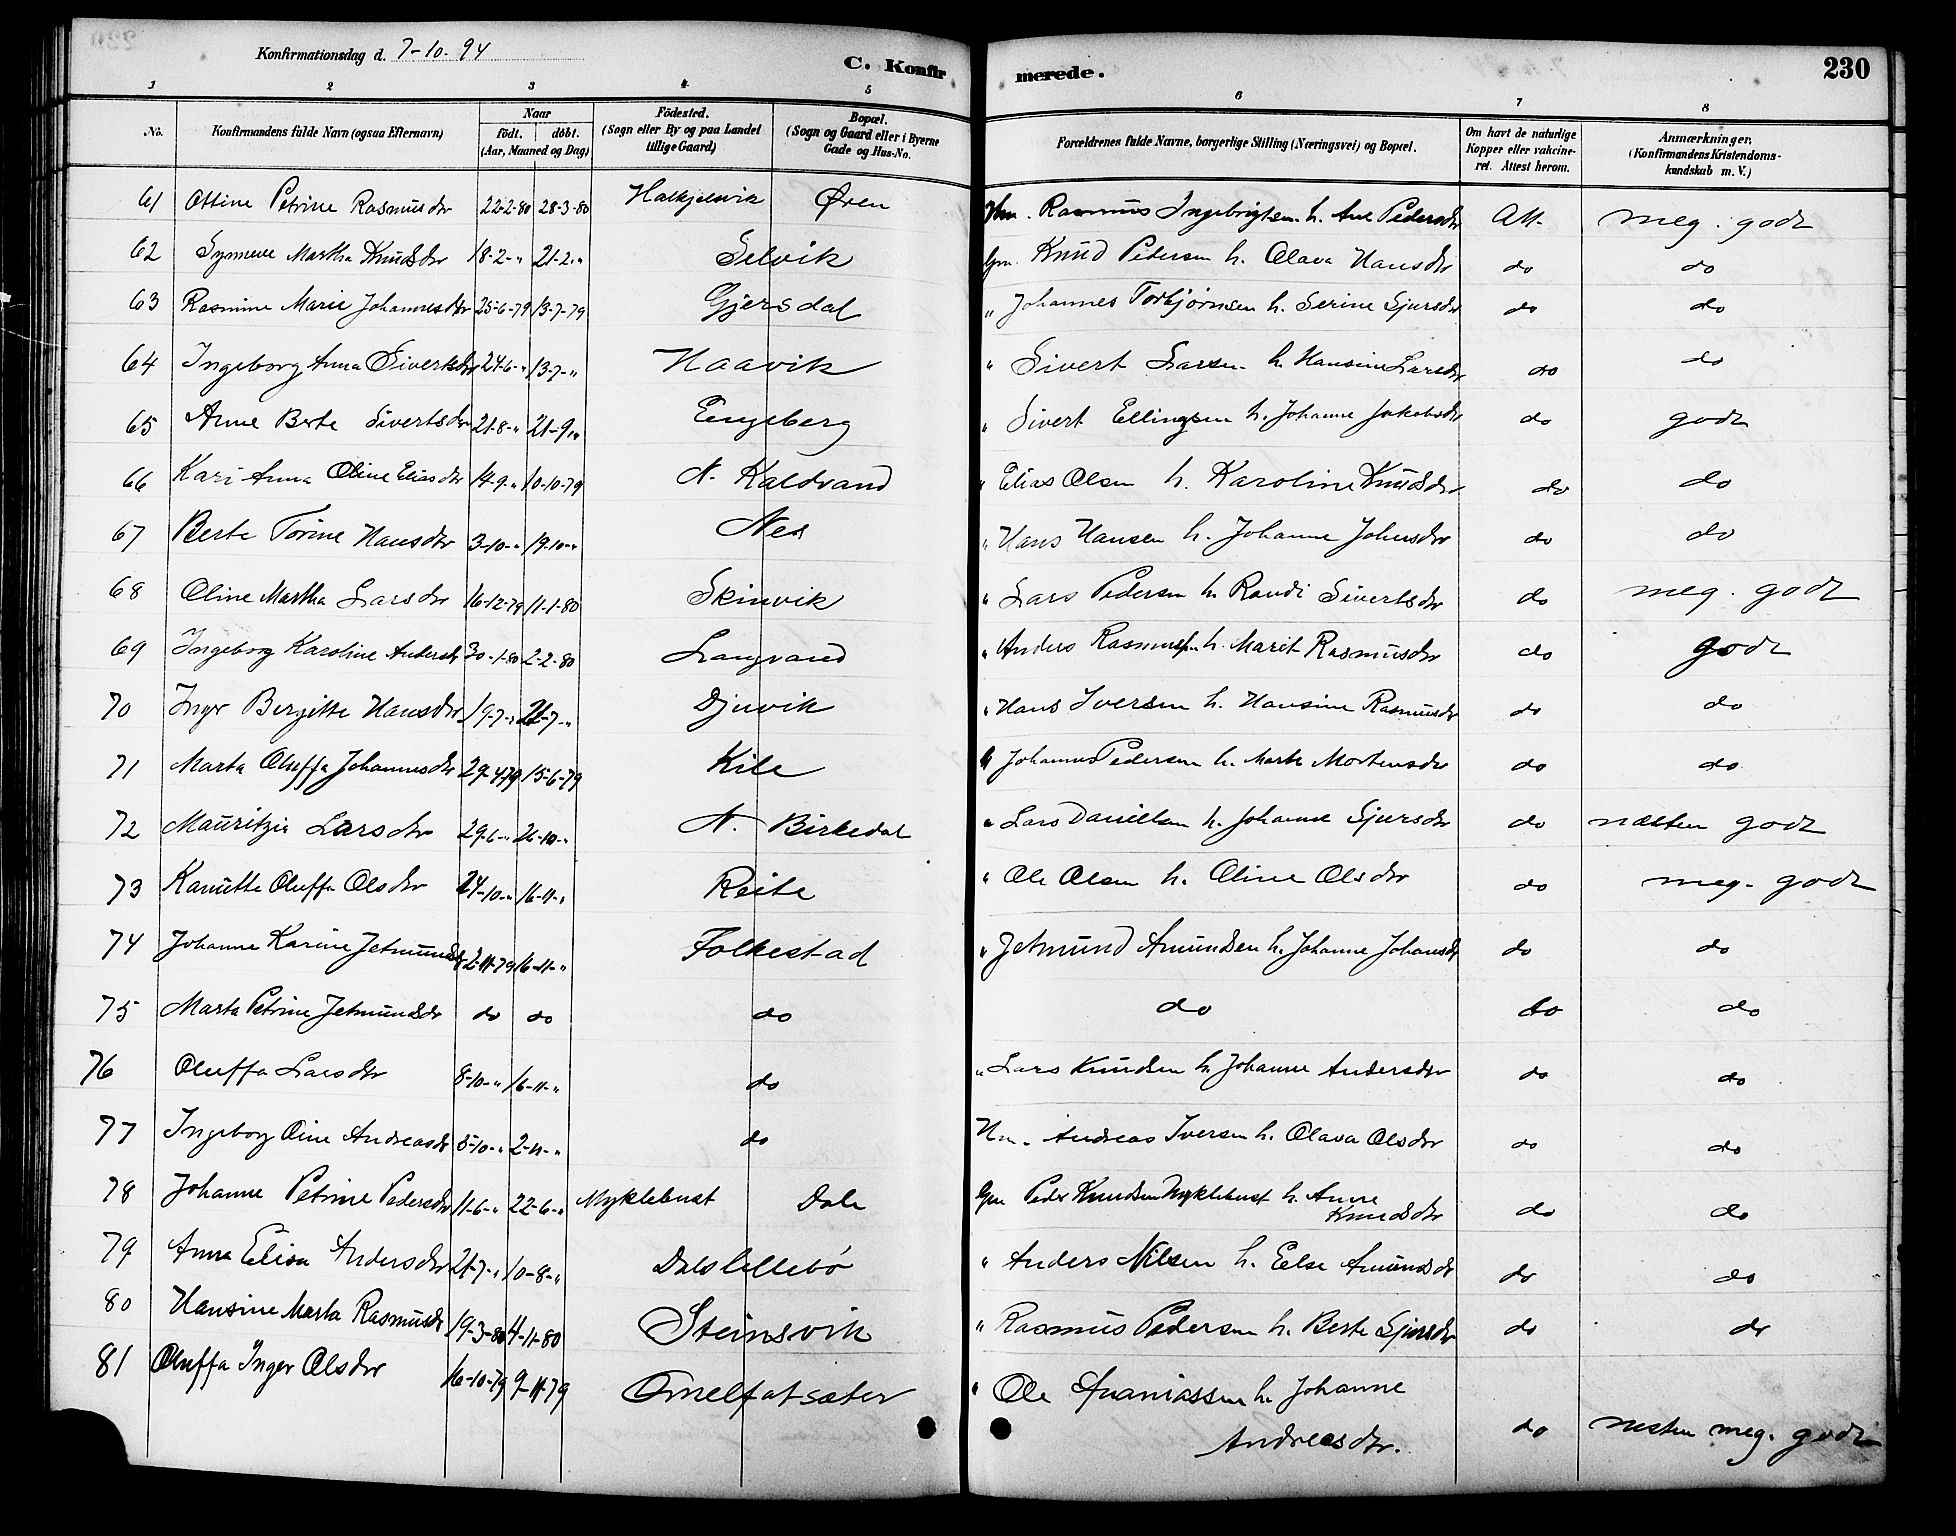 Konfirmationsdag d. 7-10-94
C. Konfirmerede.
230
1 2 3 4 5 6 7 8
No. Konfirmandens fulde Navn (ogsaa Efternavn) Naar födt. döbt. (Aar, Maaned og Dag) Födested. (Sogn eller By og paa Landet tillige Gaard) Bopæl. (Sogn og Gaard eller i Byerne Gade og Hus-No. Forældrenes fulde Navne, borgerlige Stilling (Næringsvei) og Bopæl. Om havt de naturlige Kopper eller vakcineret. Attest herom. Anmærkninger. (Konfirmandens Kristendomskundskab m. V.)
61 Ottine Petrine Rasmusdtr 22-2-80 28-3-80 Halkjelsvik Øren Hm. Rasmus Ingebrigtsen h. Ane Pedersdtr Att. meg. godt
62 Synneve Martha Knudsdtr 18-2-" 21-2-" Selvik Gm. Knud Pedersen h. Olava Hansdtr do do
63 Rasmine Marie Johannesdtr 25-6-79 13-7-79 Gjersdal " Johannes Torbjørnsen h. Serine Sjursdtr do do
64 Ingeborg Anna Sivertsdtr 24-6-" 13-7-" Haavik " Sivert Larsen h. Hansine Larsdtr do do
65 Anne Berte Sivertsdtr 21-8-" 21-9-" Engeberg " Sivert Ellingsen h. Johanne Jakobsdtr do godt
66 Kari Anna Oline Eliasdtr 14-9-" 10-10-79 N. Kaldvand " Elias Olsen h. Karoline Knudsdtr do do
67 Berte Torine Hansdtr 3-10-" 19-10-" Nes " Hans Hansen h. Johanne Johnsdtr do do
68 Oline Martha Larsdtr 16-12-79 11-1-80 Skinvik " Lars Pedersen h. Randi Sivertsdtr do meg. godt
69 Ingeborg Karoline Andersdtr 30-1-80 2-2-80 Langvand " Anders Rasmussen h. Marit Rasmusdtr do godt
70 Inger Bergitte Hansdtr 19-7-" 21-7-" Djuvik " Hans Iversen h. Hansine Rasmusdtr do do
71 Marta Oluffa Johannesdtr 29-4-79 15-6-79 Kile " Johannes Pedersen h. Marte Mortensdtr do do
72 Mauritzia Larsdtr 29-6-" 26-10-" N. Birkedal " Lars Danielsen h. Johanne Sjursdtr do næsten godt
73 Kanutte Oluffa Olsdtr 24-10-" 16-11-" Reite " Ole Olsen h. Oline Olsdtr do meg. godt
74 Johanne Karine Jetmundsdtr 2-11-79 16-11-" Folkestad " Jetmund Amundsen h. Johanne Johansdtr do do
75 Marta Petrine Jetmundsdtr do do do do do do
76 Oluffa Larsdtr 8-10-" 16-11-" do " Lars Knudsen h. Johanne Andersdtr do do
77 Ingeborg Oine Andreasdtr 5-10-" 2-11-" do Hm. Andreas Iversen h. Olava Olsdtr do do
78 Johanne Petrine Pedersdtr 11-6-" 22-6-" Myklebust Dale Gm Peder Knudsen Myklebust h. Anne Knudsdtr do do
79 Anna Elisa Andersdtr 21-7-" 10-8-" Dalslillebö " Anders Nilsen h. Else Amundsdtr do do
80 Hansine Marta Rasmusdtr 19-3-80 4-11-80 Steinsvik " Rasmus Pedersen h. Berte Sjursdtr do do
81 Oluffa Inger Olsdtr 16-10-79 9-11-79 Omelfotsæter " Ole Ananiassen h. Johanne
Andreasdtr. do næsten meg. godt